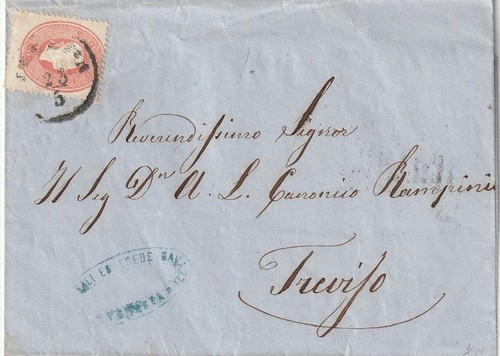 23
5
Reverendissimo Signor
Il Sig Dn A. L. Canonico Rampini
Treviso
EREDE